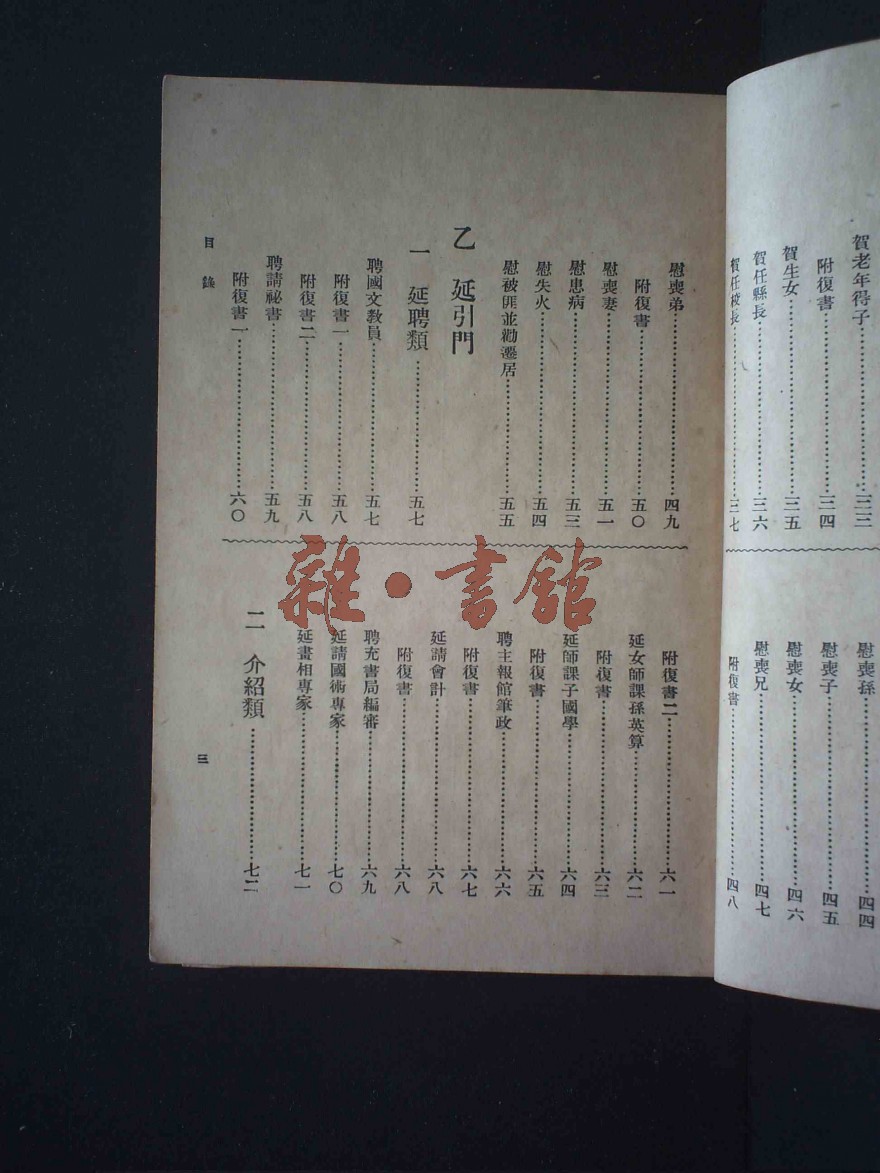 賀老年得子……三三
附復書……三四
賀生女……三五
賀任縣長……三六
賀任校長……三七
慰喪孫……四四
慰喪子……四五
慰喪女……四六
慰喪兄……四七
附復書……四八
慰喪弟……四九
附復書……五〇
慰喪妻……五一
慰患病……五三
慰失火……五四
慰被匪並勸遷居……五五
乙 延引門
一 延聘類……五七
聘國文教員……五七
附復書一……五八
附復書二……五八
聘請祕書……五九
附復書一……六〇
附復書二……六一
延女師課孫英算……六二
附復書……六三
延師課子國學……六四
附復書……六五
聘主報館筆政……六六
附復書……六七
延請會計……六八
附復書……六八
聘充書局編審……六九
延請國術專家……七〇
延畫相專家……七一
二 介紹類……七二
目錄
三
雜·書館